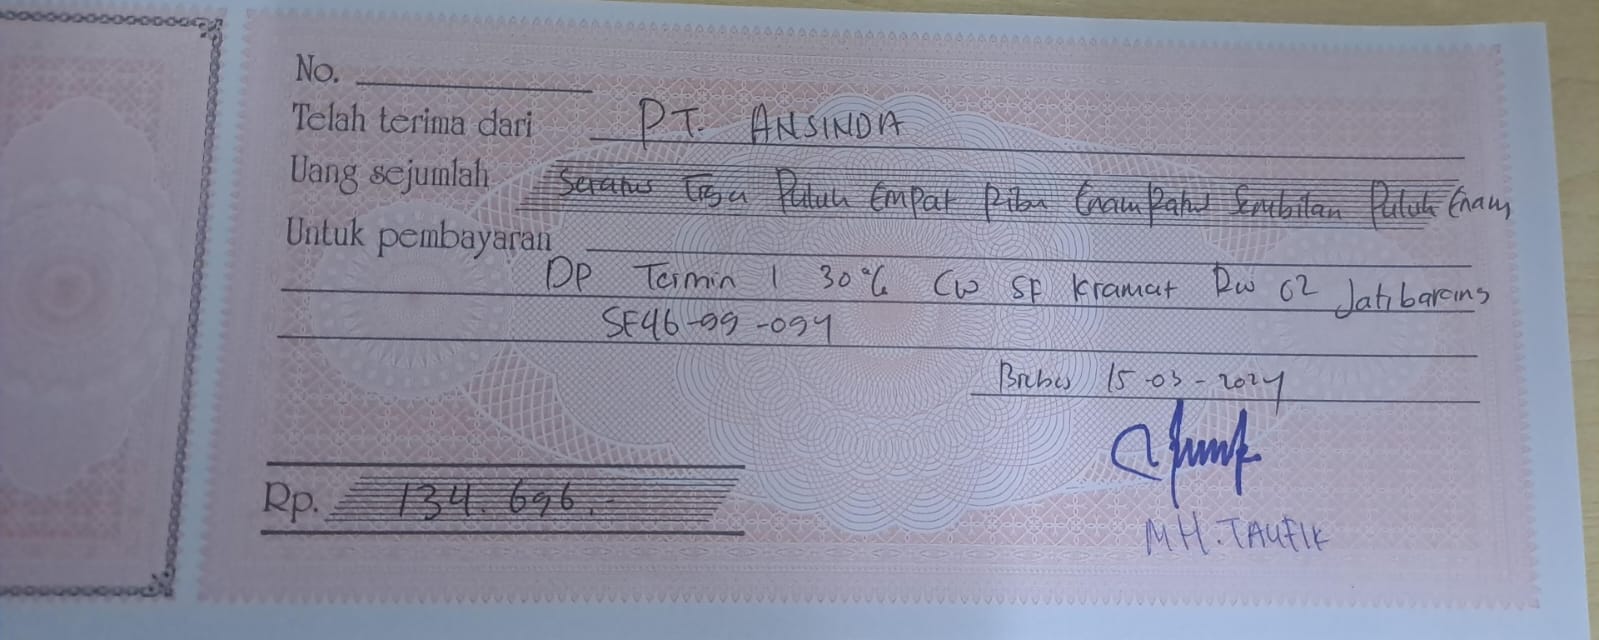 No.
Telah terima dari PT. ANSINDA
Uang sejumlah Seratus Tiga Puluh Empat Ribu Enam Ratus Sembilan Puluh Enam
Untuk pembayaran
DP Termin 1 30% CW SF Kramat RW 02 Jatibarang
SF46-99-094
Brebes 15-03-2024
Rp. 134.696.-
MH. TAUFIK